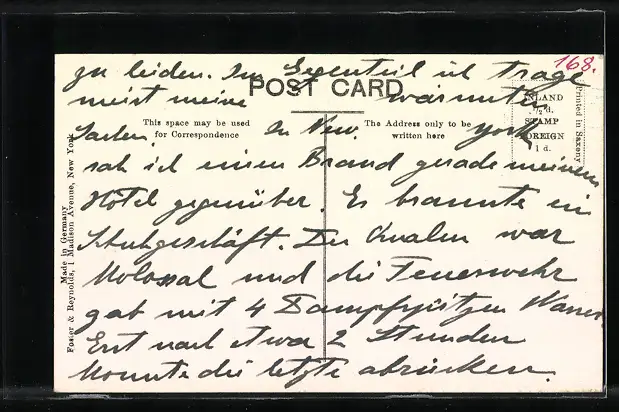 168.
zu leiden. Im Gegenteil ich trage
POST CARD
meist meine wärmsten
INLAND
½ d.
STAMP
FOREIGN
1 d.
Printed in Saxony
This space may be used
for Correspondence
The Address only to be
written here
Sachen. In New York
sah ich einen Brand gerade meinem
Hotel gegenüber. Es brannte ein
Schuhgeschäft. Der Qualm war
kolossal und die Feuerwehr
gab mit 4 Dampfspritzen Wasser.
Erst nach etwa 2 Stunden
konnte die letzte abrücken.
Made in Germany
Foster & Reynolds, 1 Madison Avenue, New York